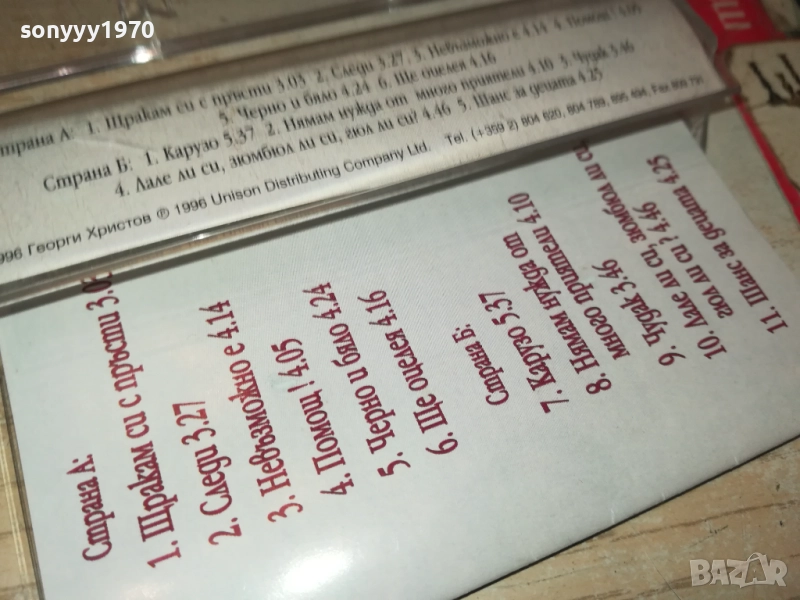 sonyyy1970
Страна А: 1. Щракам си с пръсти 3.03 2. Следи 3.27, 3. Невъзможно е 4.14 4. Помощ! 4.05
5. Черно и бяло 4.24 6. Ще оцелея 4.16
Страна Б: 1. Карузо 5.37 2. Нямам нужда от много приятели 4.10 3. Чудак 3.46
4. Лале ли си, зюмбюл ли си, гюл ли си? 4.46 5. Шанс за децата 4.25
996 Георги Христов ℗ 1996 Unison Distributing Company Ltd. Tel. (+359 2) 804 620, 804 789, 895 494, Fax 809 791
Страна А:
1. Щракам си с пръсти 3.03
2. Следи 3.27
3. Невъзможно е 4.14
4. Помощ! 4.05
5. Черно и бяло 4.24
6. Ще оцелея 4.16
Страна Б:
7. Карузо 5.37
8. Нямам нужда от
много приятели 4.10
9. Чудак 3.46
10. Лале ли си, зюмбюл ли си,
гюл ли си ? 4.46
11. Шанс за децата 4.25
BAZAR.bg